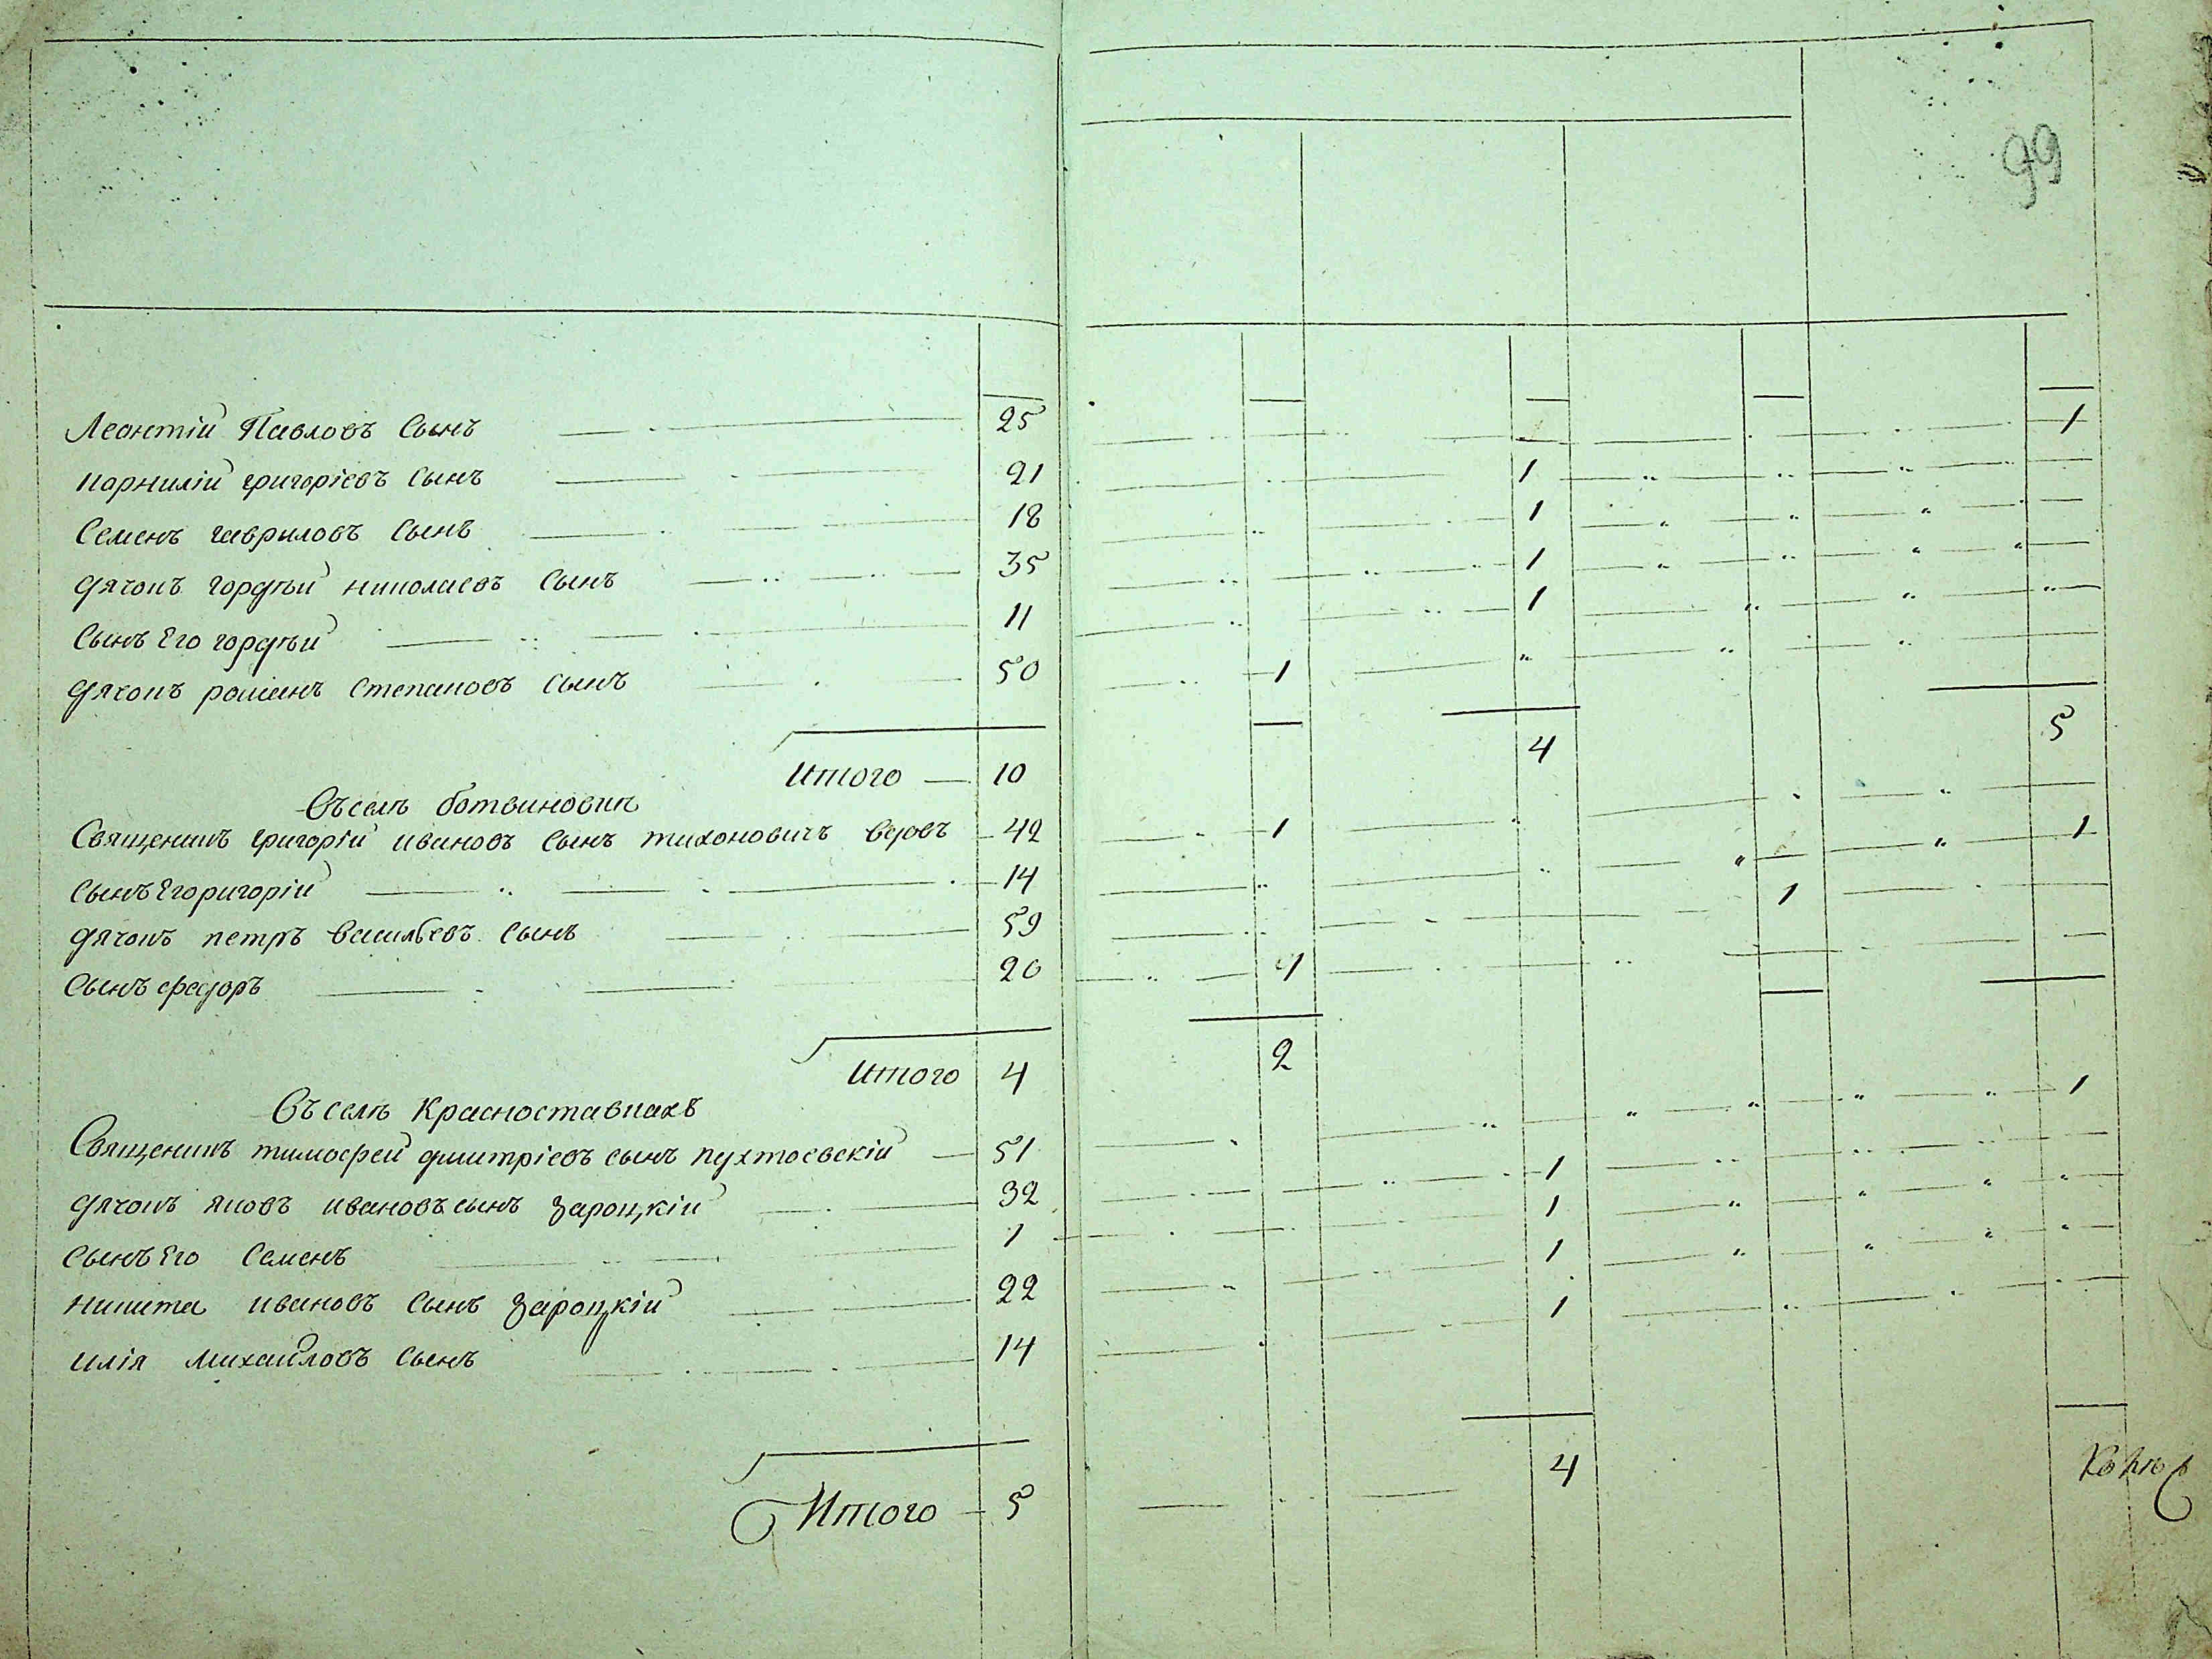 99
Леонтій Павловъ Сынъ 25 1
Корнилій григоріевъ Сынъ 21 1
Семенъ гавриловъ Сынъ 18 1
дячокъ гордѣй николаевъ Сынъ 35 1
Сынъ Его гордѣй 11 1
дячокъ романъ Степановъ Сынъ 50 1
Итого 10 4 5
Въ селѣ ботвиновки
Священикъ григорій ивановъ Сынъ тихоновичъ вдовъ 42 1
Сынъ Его григорій 14 1
дячокъ петръ васильевъ Сынъ 59 1
Сынъ федоръ 20 1
Итого 4 2
Въ селѣ Красноставкахъ
Священикъ тимофей дмитріевъ сынъ пухтаевскій 51 1
дячокъ яковъ ивановъ сынъ зароцкій 32 1
Сынъ Его Семенъ 1 1
никита ивановъ Сынъ зароцкій 22 1
илія михайловъ Сынъ 14 1
Итого 5 4